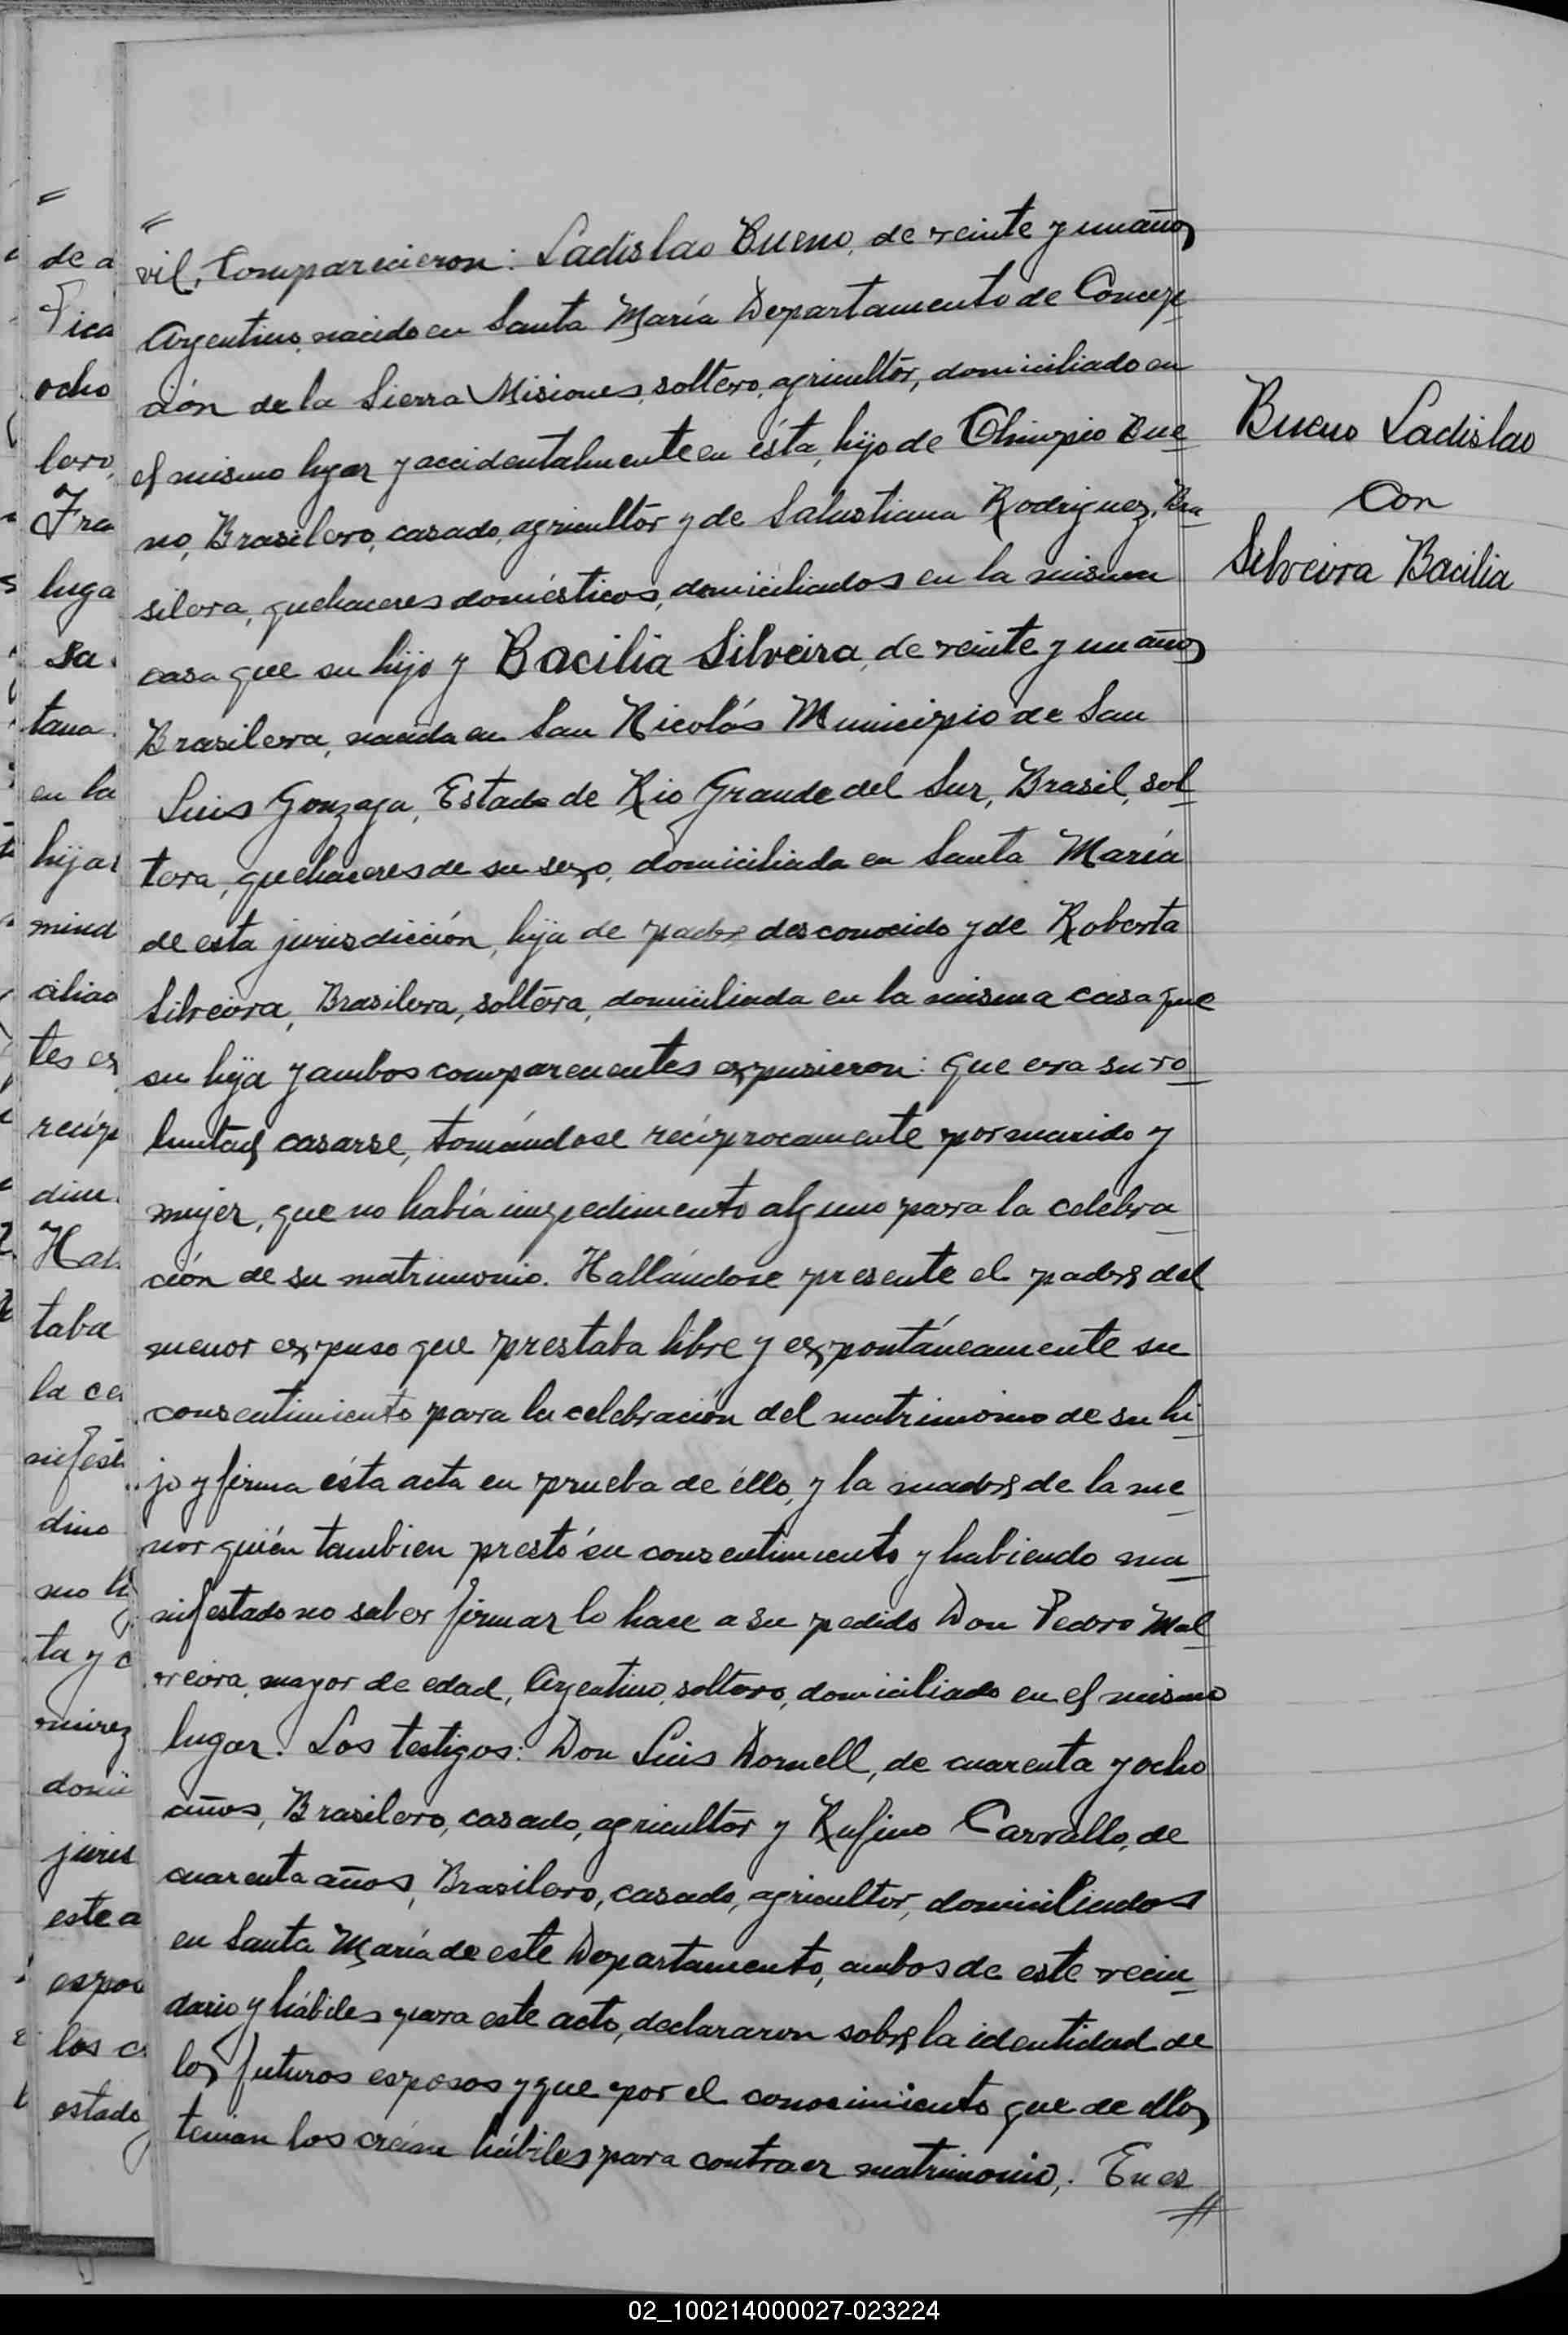 de a
Pica
ocho
lero,
Fra
luga
Sa
tana
en la
hijas
mind
ciliao
tes ex
recíp
dim
Hal
taba
la ce
nifest
dino
mo h
ta y c
mirez
domi
juris
este a
espos
los c
estado
"
vil, Comparecieron: Ladislao Bueno, de veinte y un años
Argentino, nacido en Santa María Departamento de Concep
ción de la Sierra Misiones, soltero, agricultor, domiciliado en
el mismo lugar y accidentalmente en ésta, hijo de Olimpio Bue
no, Brasilero, casado, agricultor y de Salustiana Rodriguez, Bra
silera, quehaceres domésticos, domiciliados en la misma
casa que su hijo y Bacilia Silveira, de veinte y un años
Brasilera, nacida en San Nicolás Municipio de San
Luis Gonzaga, Estado de Rio Grande del Sur, Brasil, sol
tera, quehaceres de su sexo, domiciliada en Santa María
de esta jurisdicción, hija de padre desconocido y de Roberta
Silveira, Brasilera, soltera, domiciliada en la misma casa que
su hija y ambos comparecientes expusieron: que era su vo
luntad casarse, tomándose recíprocamente por marido y
mujer, que no había impedimento alguno para la celebra
ción de su matrimonio. Hallándose presente el padre del
menor expuso que prestaba libre y expontáneamente su
consentimiento para la celebración del matrimonio de su hi
jo y firma ésta acta en prueba de éllo, y la madre de la me
nor quién tambien prestó su consentimiento y habiendo ma
nifestado no saber firmar lo hace a su pedido Don Pedro Mal
veira, mayor de edad, Argentino, soltero, domiciliado en el mismo
lugar. Los testigos: Don Luis Dornell, de cuarenta y ocho
años, Brasilero, casado, agricultor y Rufino Carvallo, de
cuarenta años, Brasilero, casado, agricultor, domiciliados
en Santa María de este Departamento, ambos de este vecin
dario y hábiles para este acto, declararon sobre la identidad de
los futuros esposos y que por el conocimiento que de ellos
tenian los creían hábiles para contraer matrimonio. En es
//
Bueno Ladislao
Con
Silveira Bacilia
02_100214000027-023224